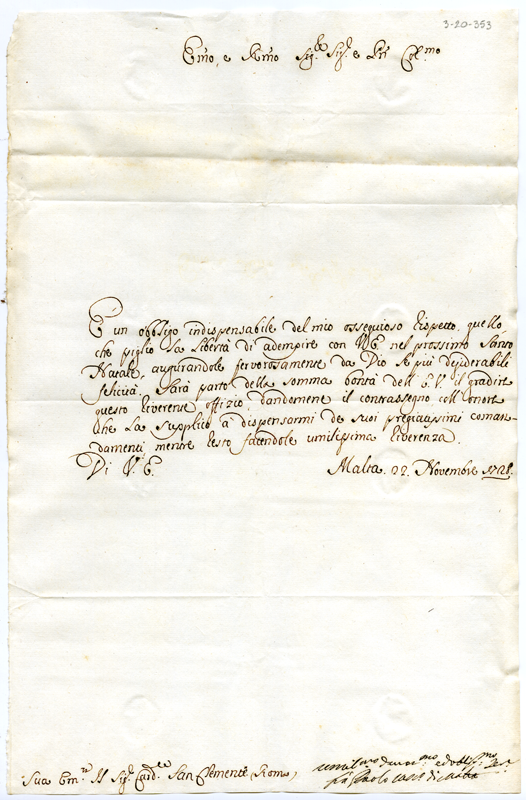 3-20-353
Emo, e Rmo Sig.re Sig.r e Pn Col.mo
È un obbligo indispensabile del mio ossequioso rispetto quello
che piglio la libertà di adempire con V.E. nel prossimo Santo
Natale, augurandole fervorosamente da Dio le più desiderabili
felicità. Sarà parto della somma bontà dell'E.V. il gradire
questo riverente offizio, dandomene il contrassegno coll'onore
che la supplico a dispensarmi de suoi pregiatissimi coman-
damenti, mentre resto facendole umilissima riverenza.
Di V.E. Malta 22 Novembre 1728.
Sua Em.za Il Sig.r Card.le San Clemente Roma